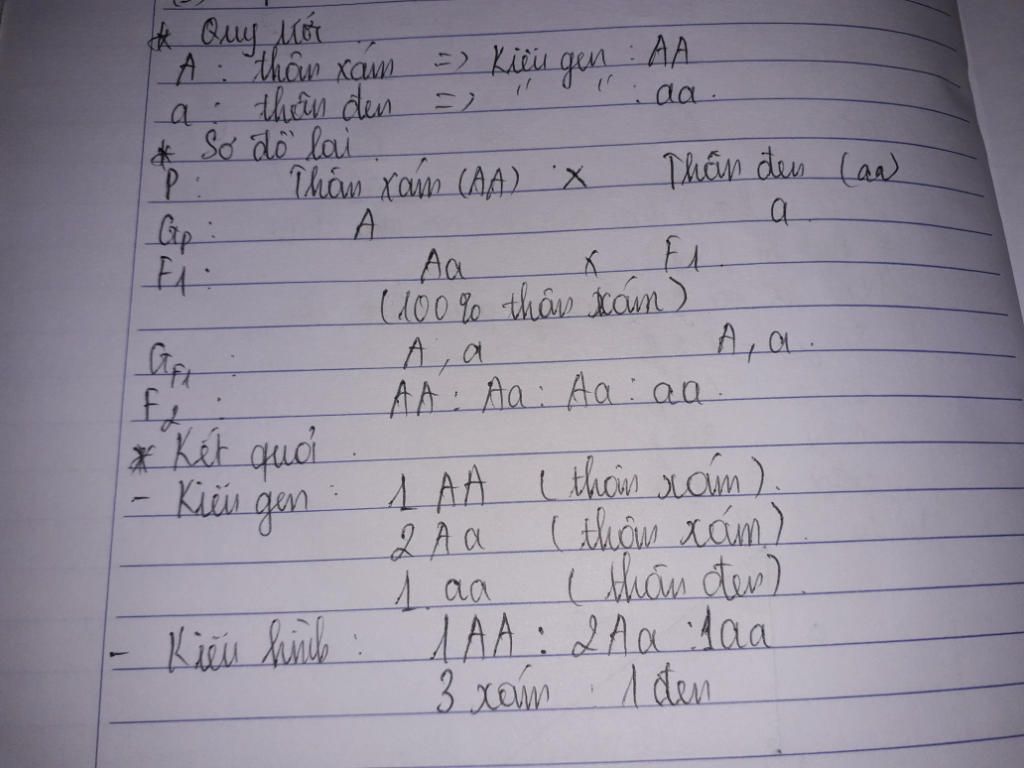 * Quy ước
A : thân xám => Kiểu gen : AA
a : thân đen => " " : aa.
* Sơ đồ lai
P : Thân xám (AA) x Thân đen (aa)
Gp : A a
F1 : Aa x F1
(100% thân xám)
GF1 : A, a A, a.
F2 : AA : Aa : Aa : aa.
* Kết quả.
- Kiểu gen : 1 AA (thân xám).
2 Aa (thân xám)
1 aa (thân đen)
- Kiểu hình : 1AA : 2Aa : 1aa
3 xám : 1 đen